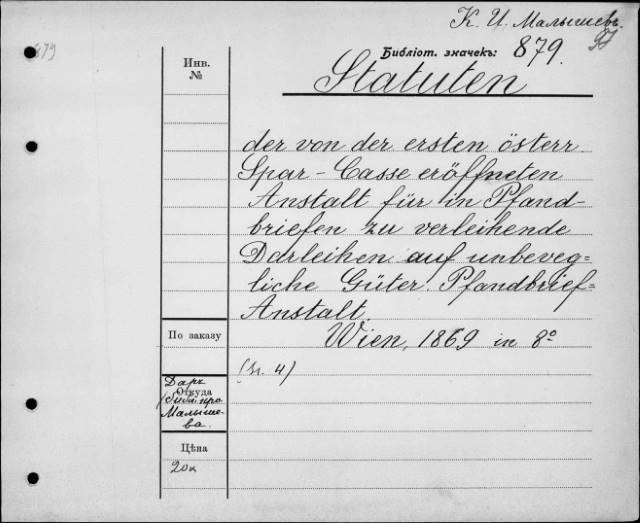 К. И. Малышевъ.
879
Библіот. значекъ: 879.
Инв.
№
Statuten
der von der ersten österr.
Spar-Casse eröffneten
Anstalt für in Pfand-
briefen zu verleihende
Darleihen auf unbeveg=
liche Güter. Pfandbrief=
Anstalt.
По заказу
Wien, 1869 in 8º
Даръ
Откуда
Малыше-
ва.
Цѣна
20к